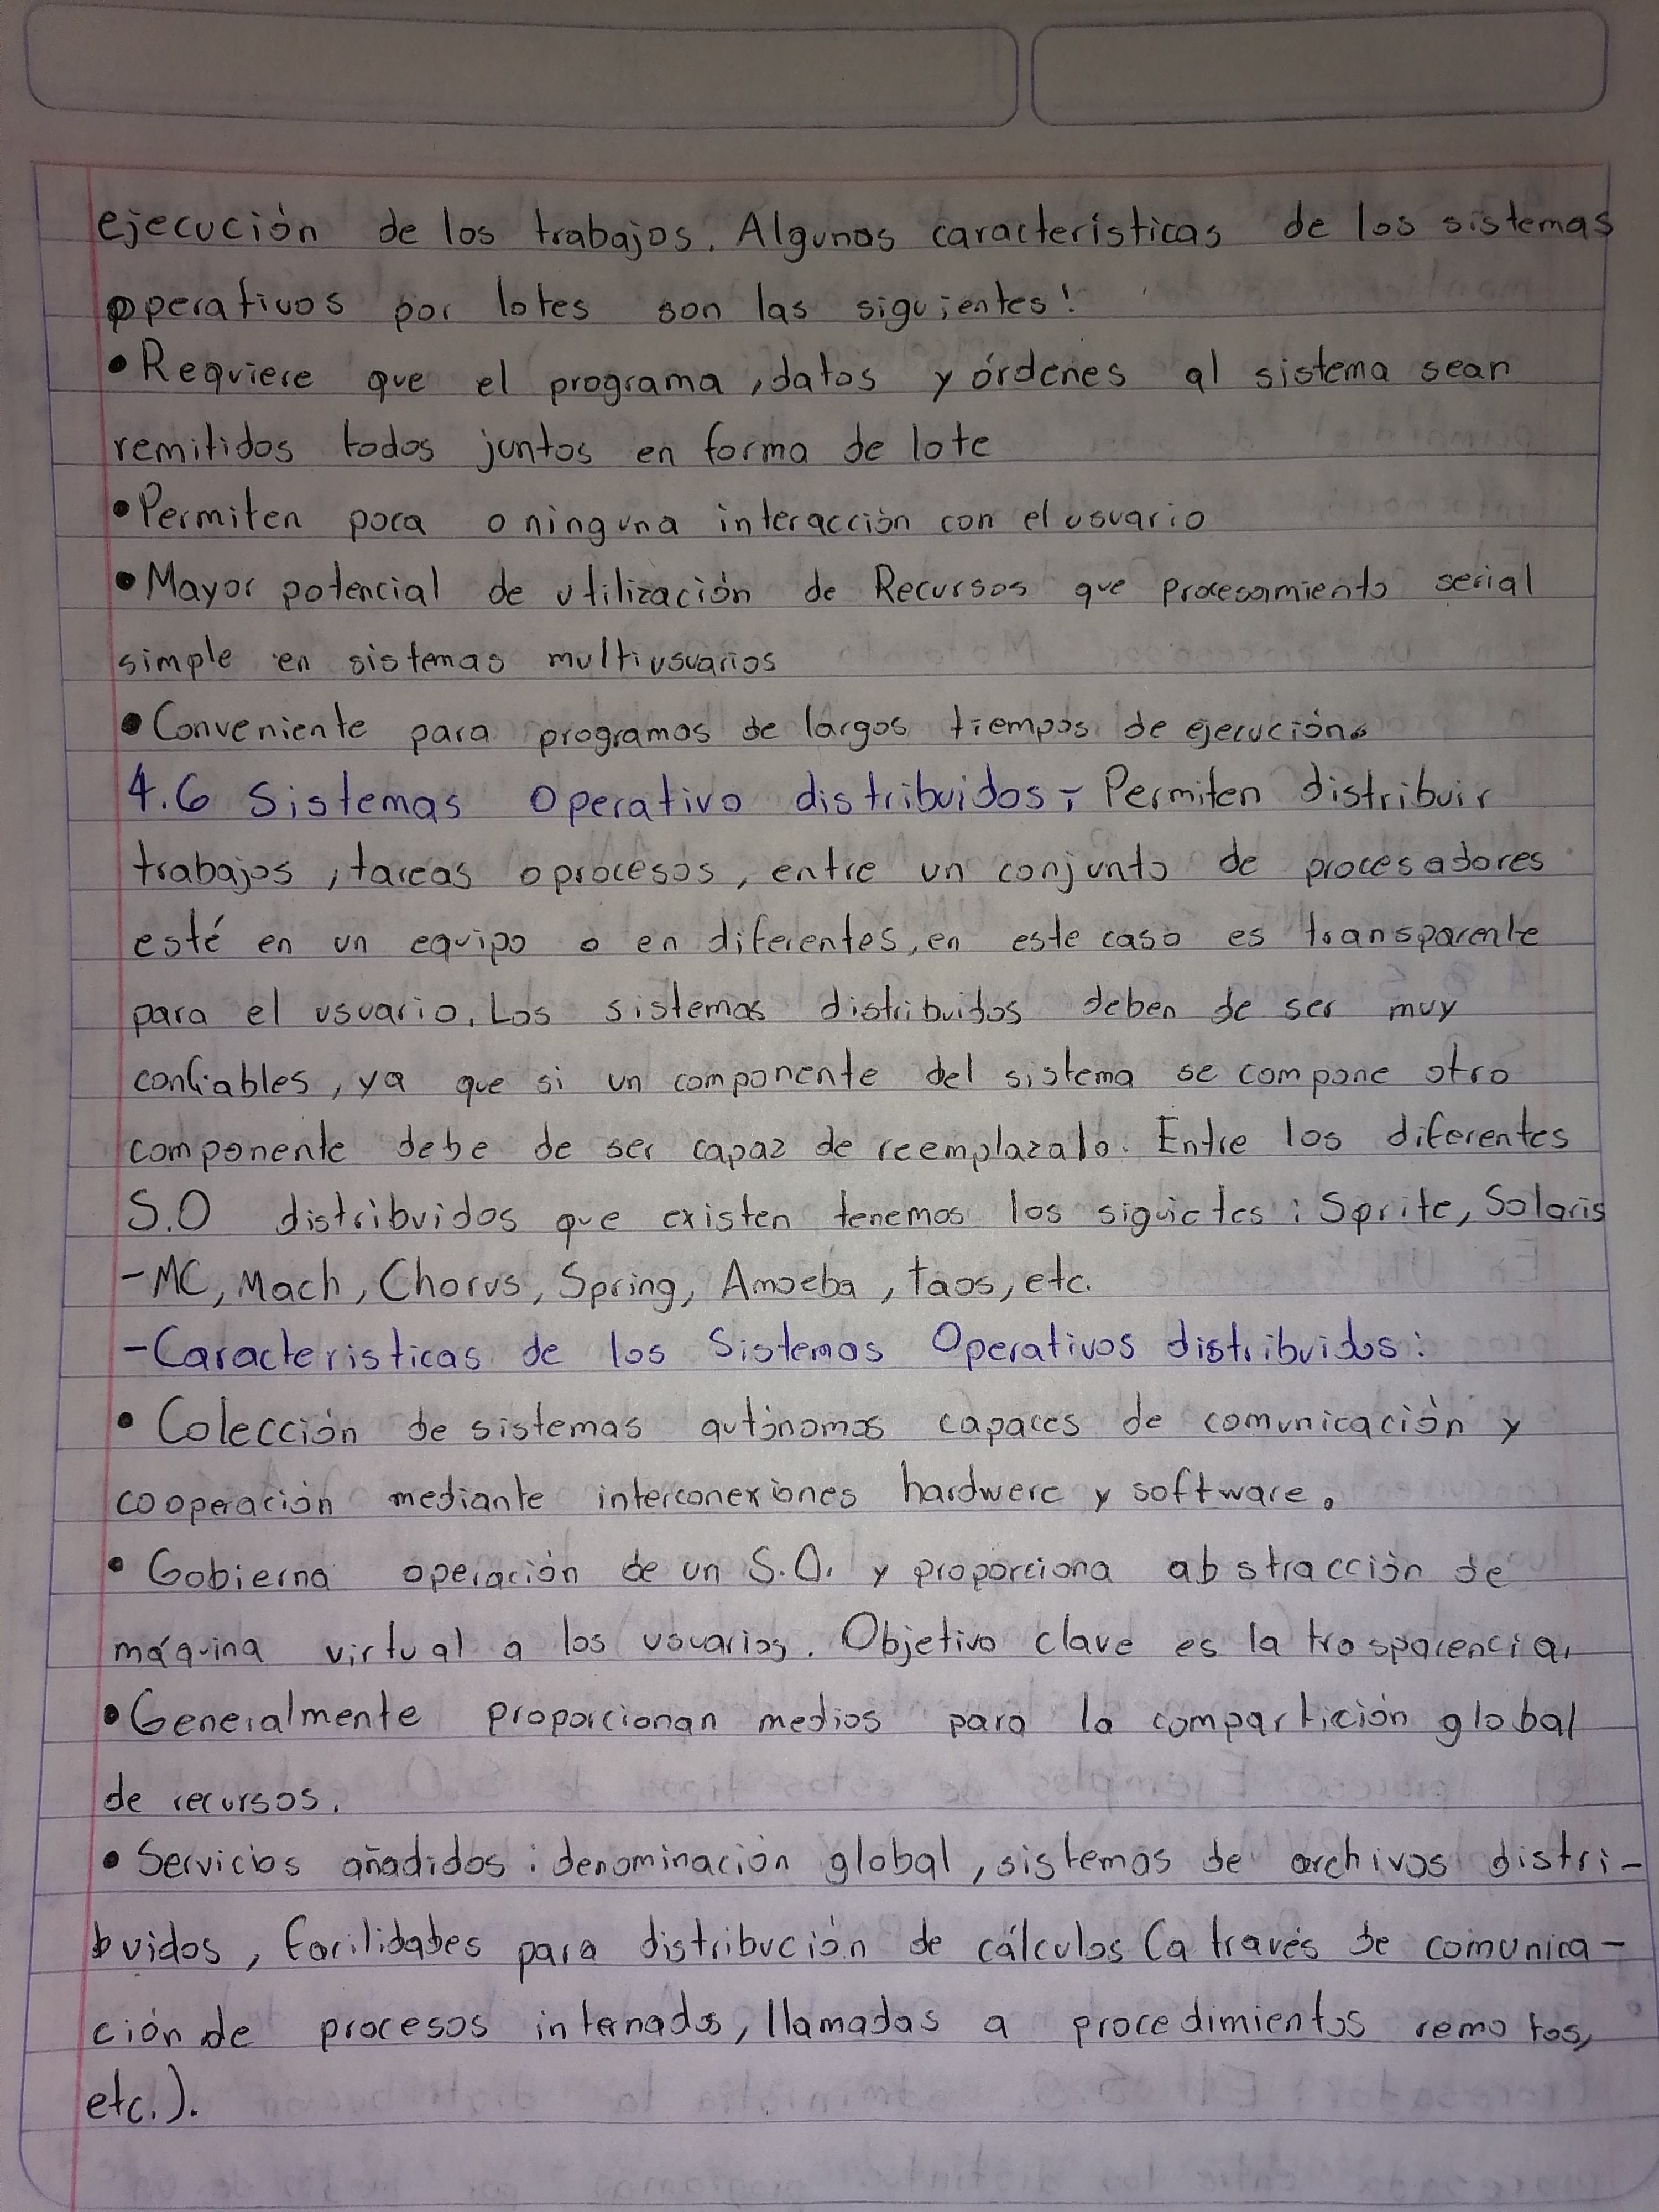 ejecución de los trabajos. Algunas características de los sistemas
operativos por lotes son las siguientes:
• Requiere que el programa, datos y órdenes al sistema sean
remitidos todos juntos en forma de lote
• Permiten poca o ninguna interacción con el usuario
• Mayor potencial de utilización de Recursos que procesamiento serial
simple en sistemas multiusuarios
• Conveniente para programas de largos tiempos de ejecución.
4.6 Sistemas Operativo distribuidos; Permiten distribuir
trabajos, tareas o procesos, entre un conjunto de procesadores
esté en un equipo o en diferentes, en este caso es transparente
para el usuario. Los sistemas distribuidos deben de ser muy
confiables, ya que si un componente del sistema se compone otro
componente debe de ser capaz de reemplazalo. Entre los diferentes
S.O distribuidos que existen tenemos los siguietes: Sprite, Solaris
-MC, Mach, Chorus, Spring, Amoeba, Taos, etc.
-Caracteristicas de los Sistemas Operativos distribuidos:
• Colección de sistemas autónomos capaces de comunicación y
cooperación mediante interconexiones hardwere y software.
• Gobierna operación de un S.O. y proporciona abstracción de
máquina virtual a los usuarios. Objetivo clave es la trasparencia.
• Generalmente proporcionan medios para la compartición global
de recursos.
• Servicios añadidos: denominación global, sistemas de archivos distri-
buidos, facilidades para distribución de cálculos (a través de comunica-
ción de procesos internados, llamadas a procedimientos remotos,
etc.).